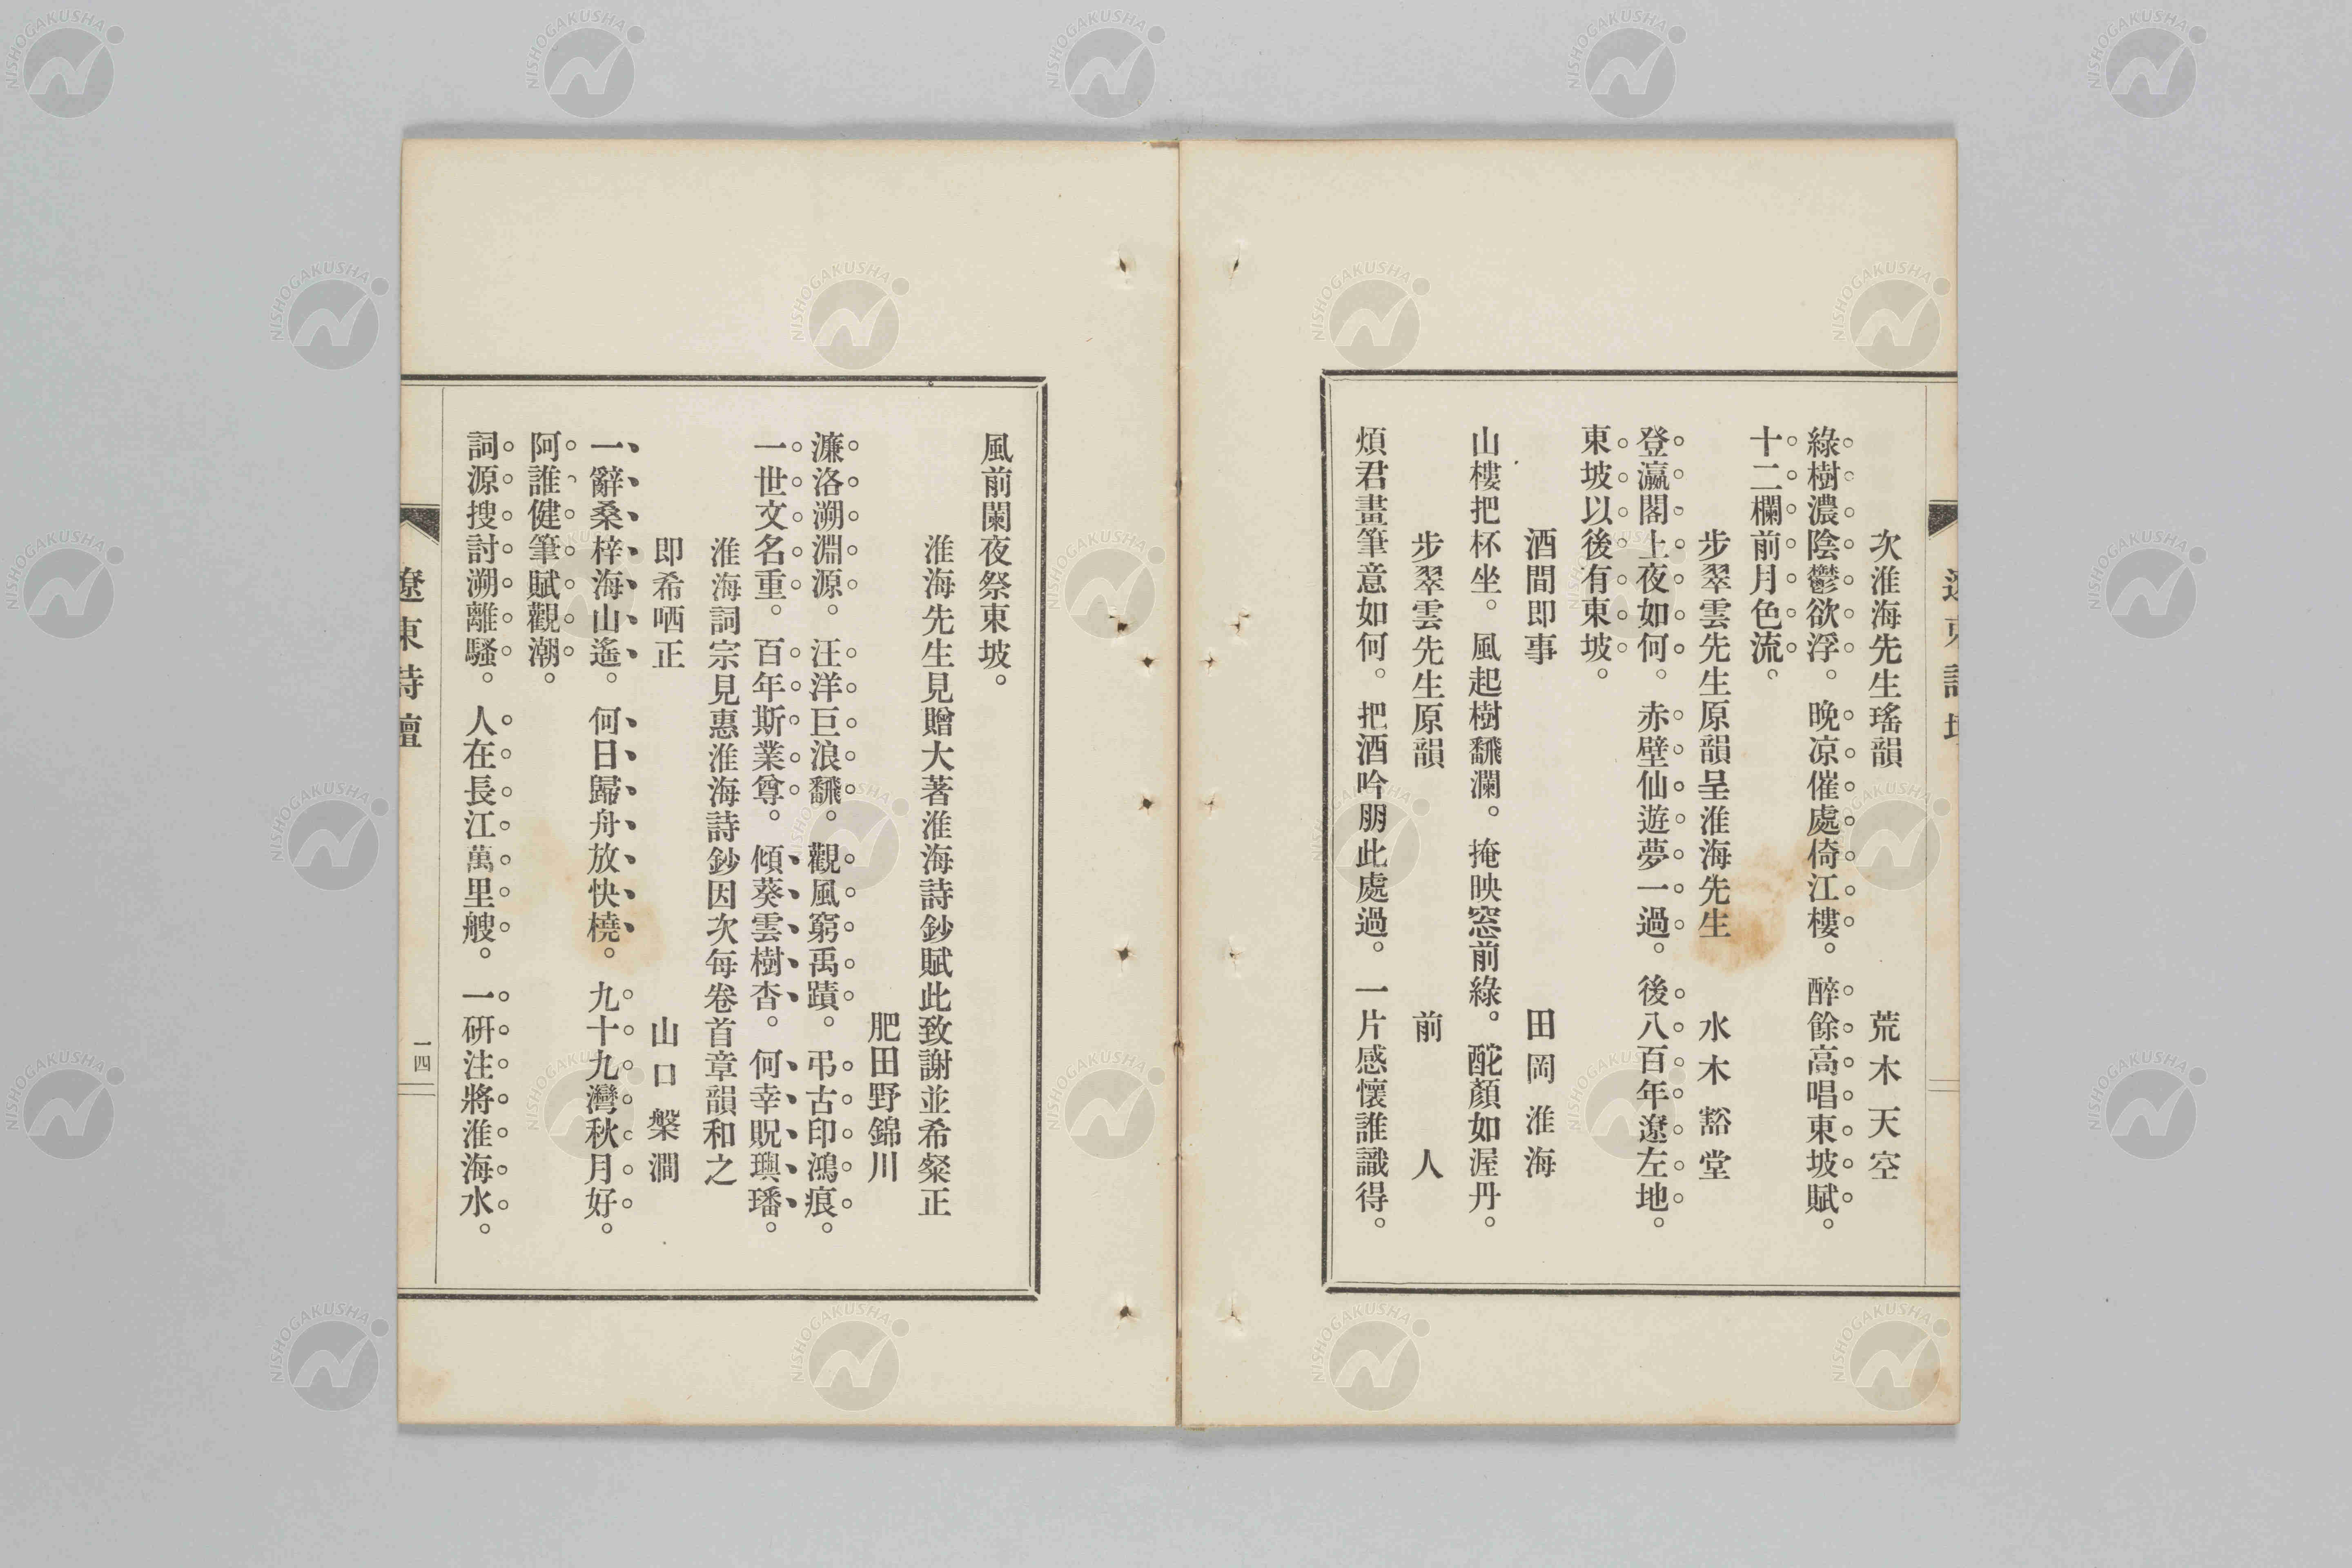 次淮海先生瑤韻　荒木天空
綠樹濃陰鬱欲浮。晩凉催處倚江樓。醉餘高唱東坡賦。
十二欄前月色流。
步翠雲先生原韻呈淮海先生　水木豁堂
登瀛閣上夜如何。赤壁仙遊夢一過。後八百年遼左地。
東坡以後有東坡。
酒間即事　田岡淮海
山樓把杯坐。風起樹飜瀾。掩映窓前綠。酡顏如渥丹。
步翠雲先生原韻　前人
煩君畫筆意如何。把酒吟朋此處過。一片感懷誰識得。
風前闌夜祭東坡。
淮海先生見贈大著淮海詩鈔賦此致謝並希粲正
肥田野錦川
濂洛溯淵源。汪洋巨浪飜。觀風窮禹蹟。弔古印鴻痕。
一世文名重。百年斯業尊。傾葵雲樹杳。何幸貺璵璠。
淮海詞宗見惠淮海詩鈔因次每卷首章韻和之
即希哂正　山口槃澗
一辭桑梓海山遙。何日歸舟放快橈。九十九灣秋月好。
阿誰健筆賦觀潮。
詞源搜討溯離騷。人在長江萬里艘。一硏注將淮海水。
遼東詩壇
一四
NISHOGAKUSHA